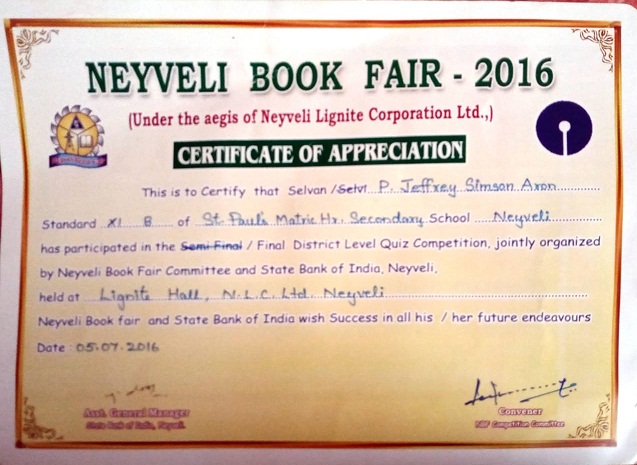 NEYVELI BOOK FAIR - 2016
(Under the aegis of Neyveli Lignite Corporation Ltd.,)
CERTIFICATE OF APPRECIATION
This is to Certify that Selvan / Selvi P. Jeffrey Simson Aron
Standard XI B of St. Paul's Matric Hr. Secondary School Neyveli
has participated in the Semi Final / Final District Level Quiz Competition, jointly organized
by Neyveli Book Fair Committee and State Bank of India, Neyveli,
held at Lignite Hall, N.L.C. Ltd. Neyveli
Neyveli Book fair and State Bank of India wish Success in all his / her future endeavours
Date : 05.07.2016
Asst. General Manager
State Bank of India, Neyveli.
Convener
NBF Competition Committee